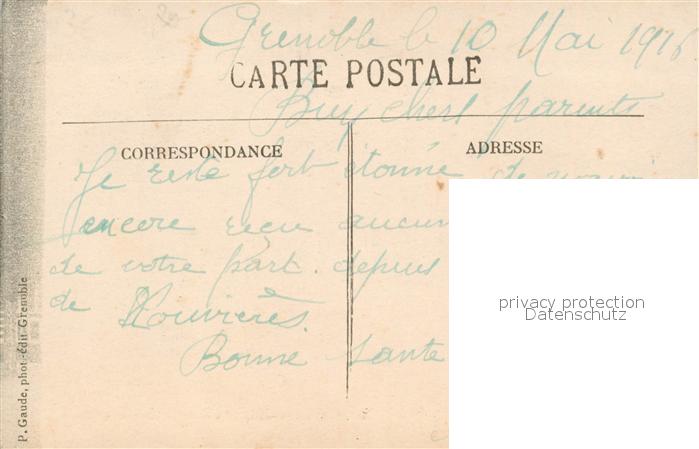 Grenoble le 10 Mai 1916
CARTE POSTALE
chers parents
CORRESPONDANCE
ADRESSE
Je reste fort étonné de
encore reçu aucun
de votre part. depuis
de Rouvières.
Bonne santé
privacy protection
Datenschutz
P. Gaude, phot.-édit. Grenoble